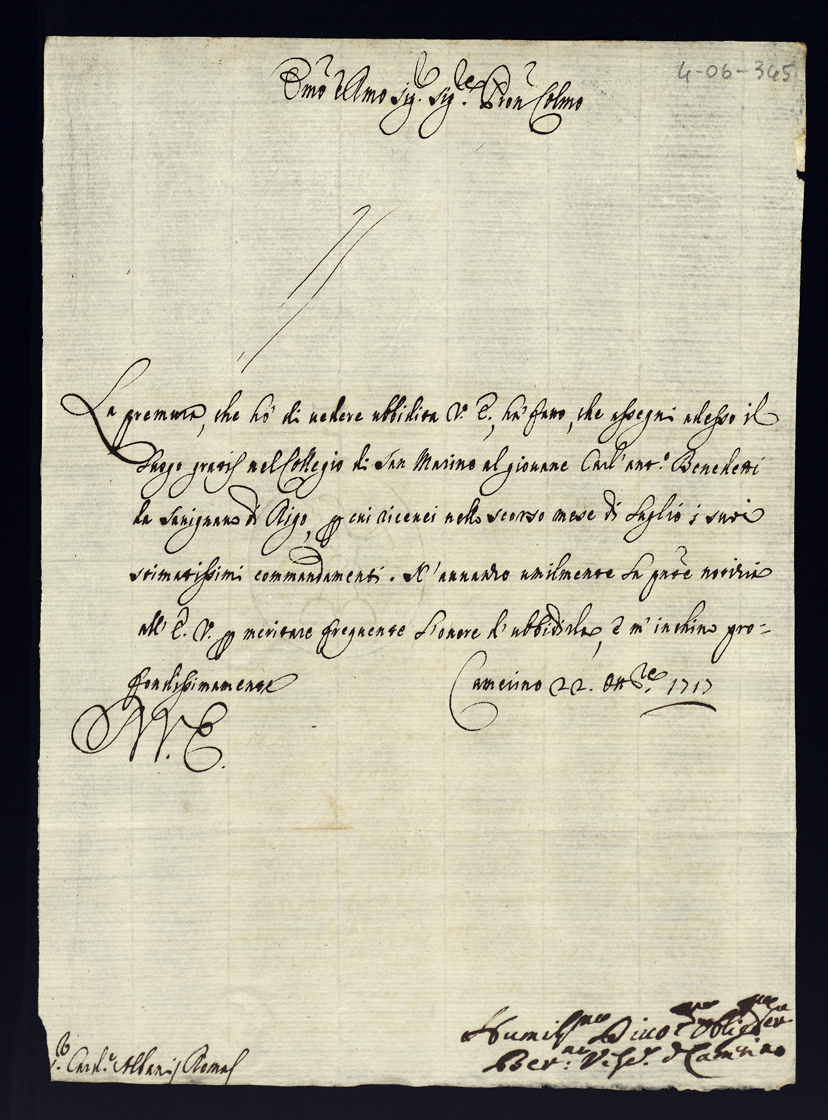 4-06-345
Emo e Rmo Sig.r Sig.re Pron Colmo
La premura, che hò di vedere ubbidita V. E., hà fatto, che assegni adesso il
luogo gratis nel Collegio di San Marino al giovane Carl'ant.o Benedetti
da Savignano di Rigo, per cui ricevei nello scorso mese di Luglio i suoi
stimatissimi commandamenti. N'avvanzo umilmente la pnte notizia
all'E. V. per meritare frequente l'onore d'ubbidirla, e m'inchino pro-
fondissimamente
Camerino 22. Ott.re 1717
D V. E.
Humiliss.mo Divot.mo Oblig.mo Ser.re
Ber.no Vesc.o di Camerino
S.r Card.e Albani Roma